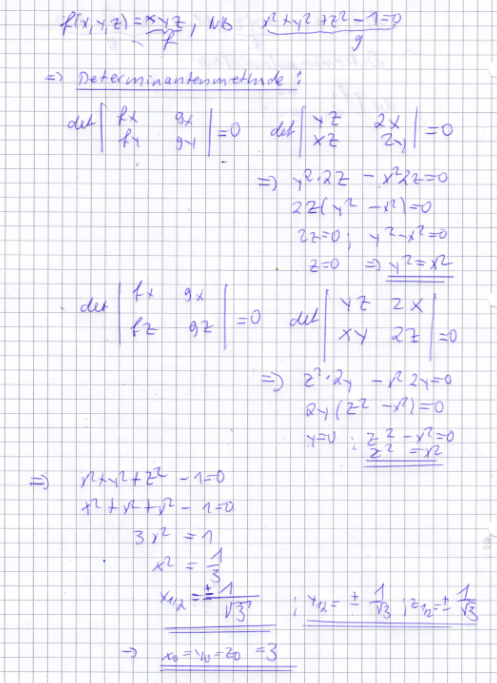 f(x,y,z) = xyz , NB x²+y²+z²-1=0
f g
=> Determinantenmethode:
det | fx gx | = 0 det | yz 2x | = 0
| fy gy | | xz 2y |
=> y²·2z - x²2z=0
2z(y² - x²)=0
2z=0 ; y²-x²=0
z=0 => y²=x²
det | fx gx | = 0 det | yz 2x | = 0
| fz gz | | xy 2z |
=> z²·2y - x²2y=0
2y(z² - x²)=0
y=0 ; z²-x²=0
z²=x²
=> x²+y²+z²-1=0
x²+x²+x²-1=0
3x² = 1
x² = 1/3
x1/2 = ±1/√3 ; y1/2 = ± 1/√3 ; z1/2 = ± 1/√3
-> x0=y0=z0 = 3